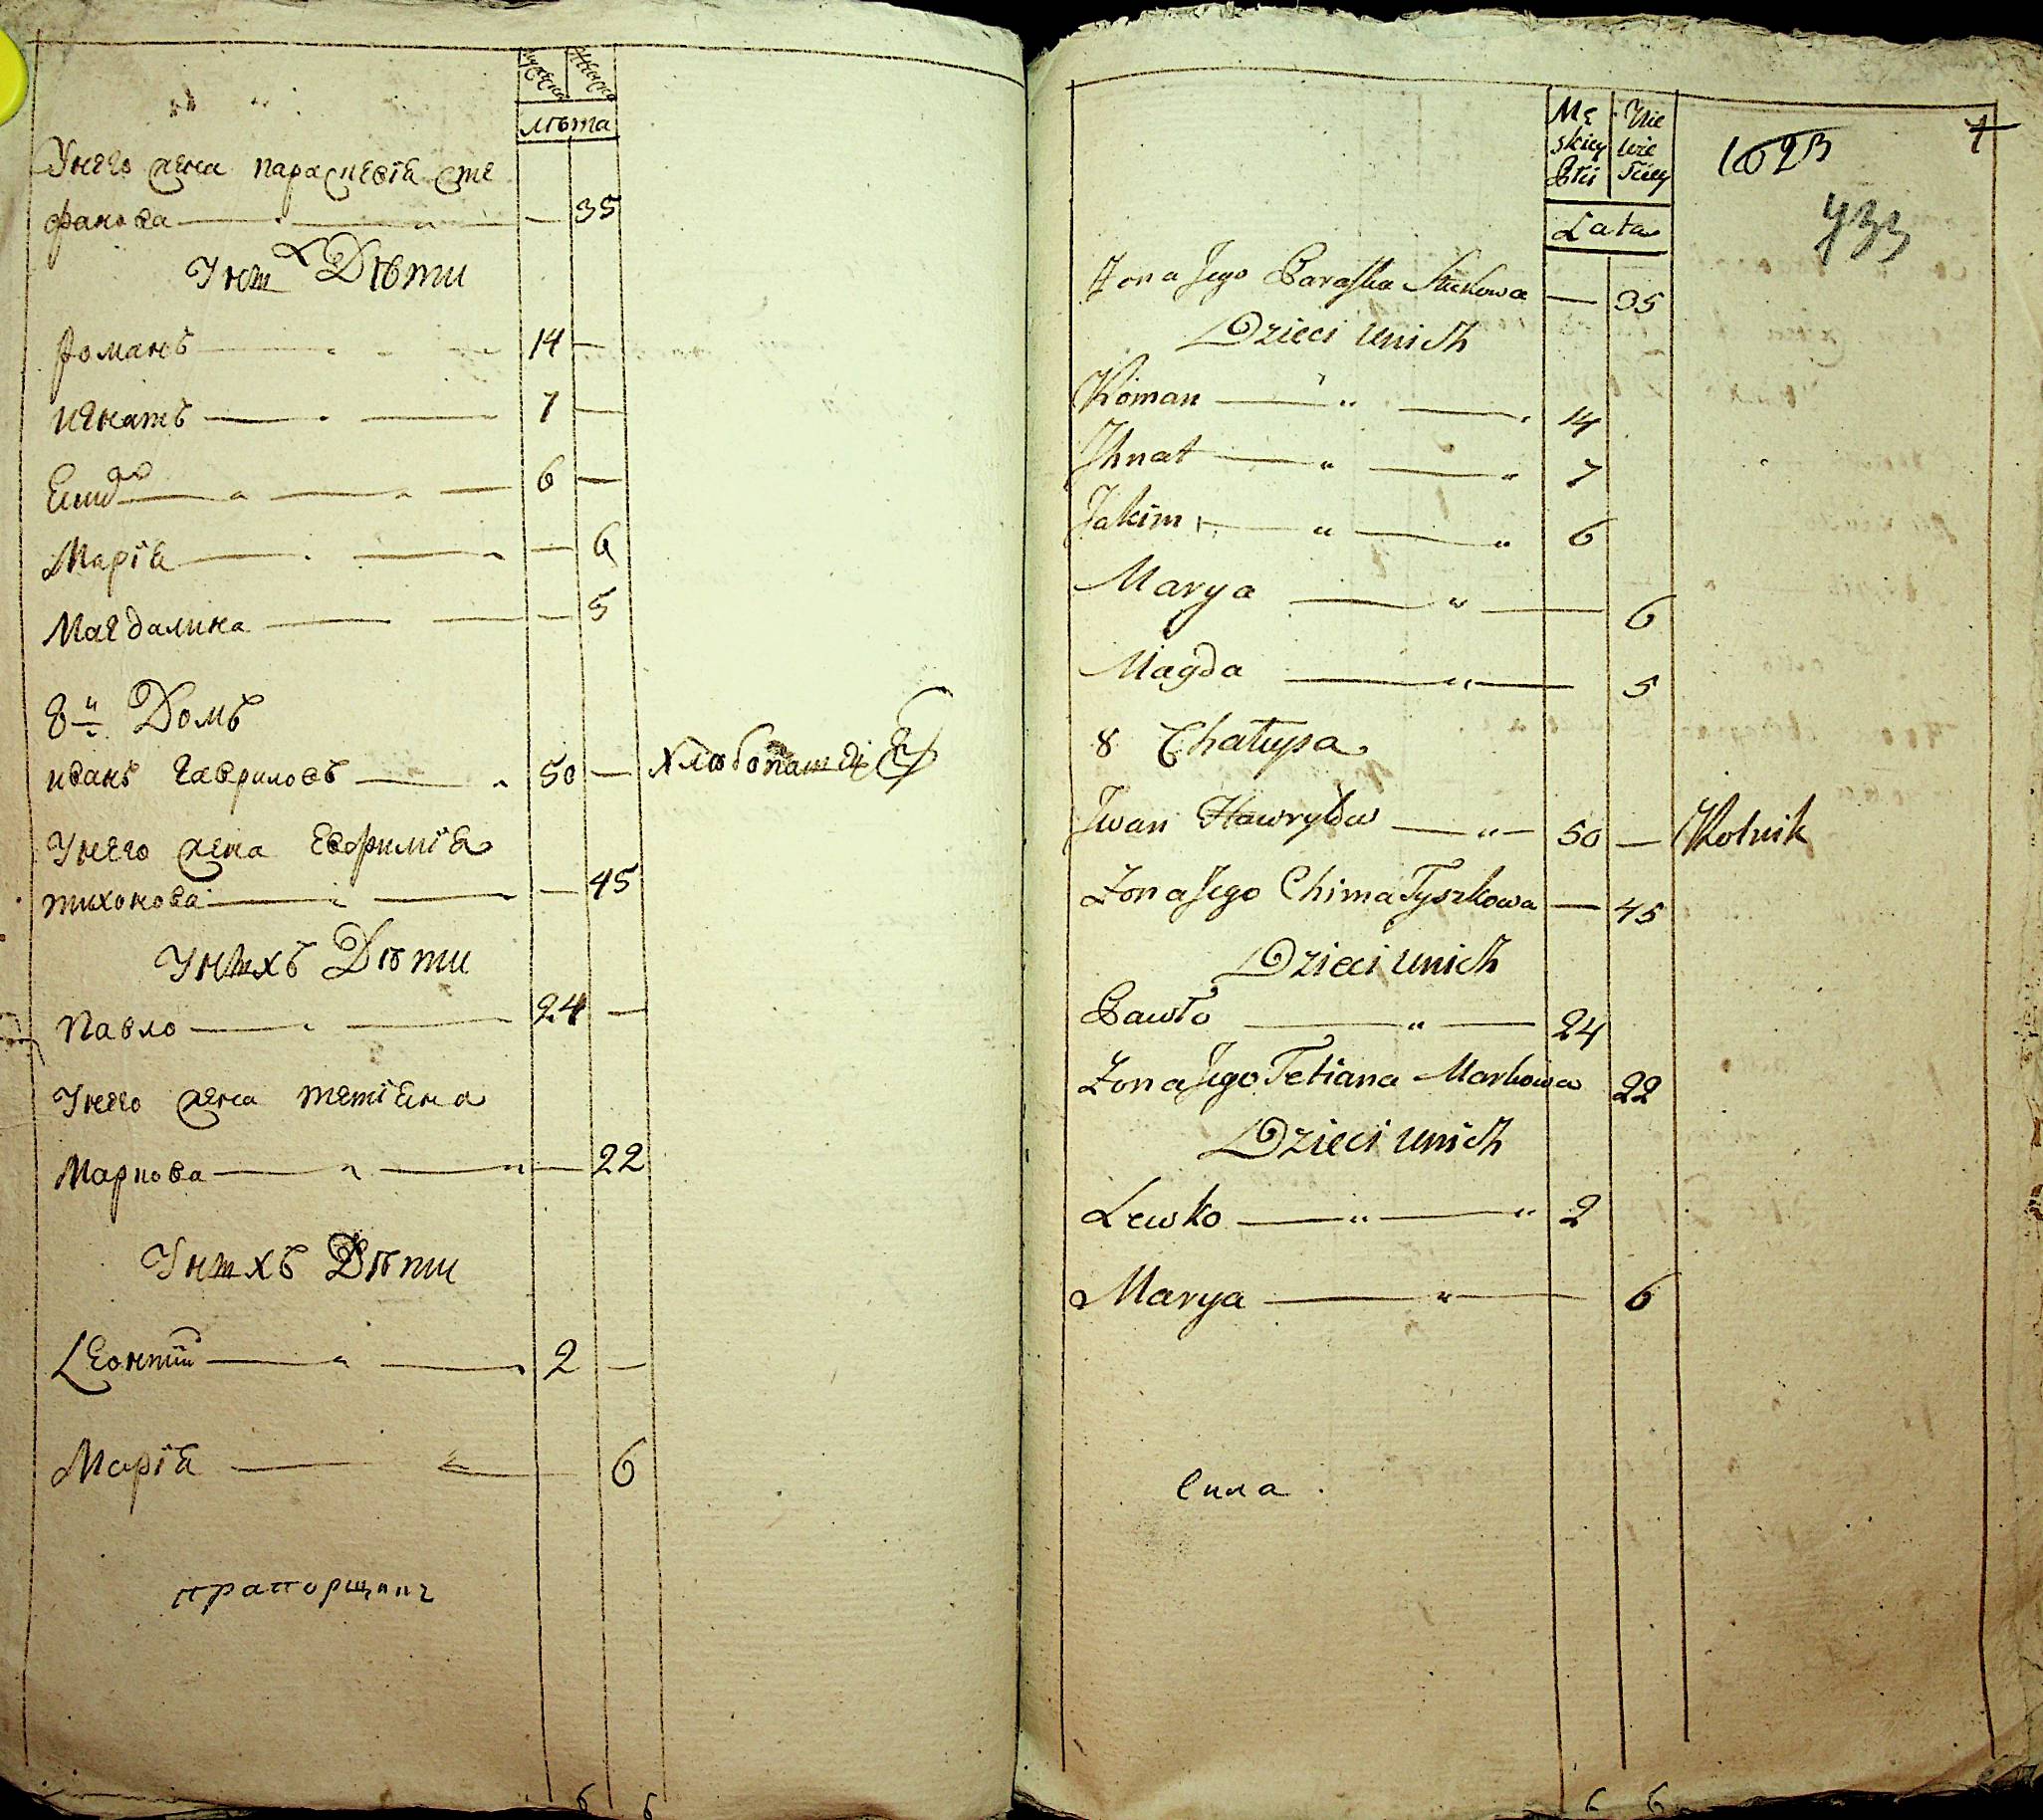 Мужеска Женска
лѣта
Унего жена параскевія сте
фанова — — — 35
Уних Дѣти
романъ — — 14 —
игнатъ — — 7 —
Еким — — 6 —
Марія — — — 6
Магдалина — — — 5
8й Домъ
иванъ гавриловъ — 50 — хлѣбопашец
Унего жена евфимія
тихонова — — — 45
Унихъ Дѣти
Павло — — 24 —
Унего жена тетіяна
Маркова — — — 22
Унихъ Дѣти
Леонтий — — 2 —
Марія — — 6
прапорщикъ
Mę Nie
skiey wie
Płci sciey
Lata
1023
7
733
Żona Jego Paraska Stećkowa — 35
Dzieci unich
Roman — — 14
Ihnat — — 7
Jakim — — 6
Marya — — 6
Magda — — 5
8 Chałupa
Iwan Hawryłów — 50 — Rolnik
Żona Jego Chima Tyszkowa — 45
Dzieci unich
Pawło — — 24
Żona Jego Tetiana Markowa 22
Dzieci unich
Lewko — — 2
Marya — — 6
Сила
6 6
6 6